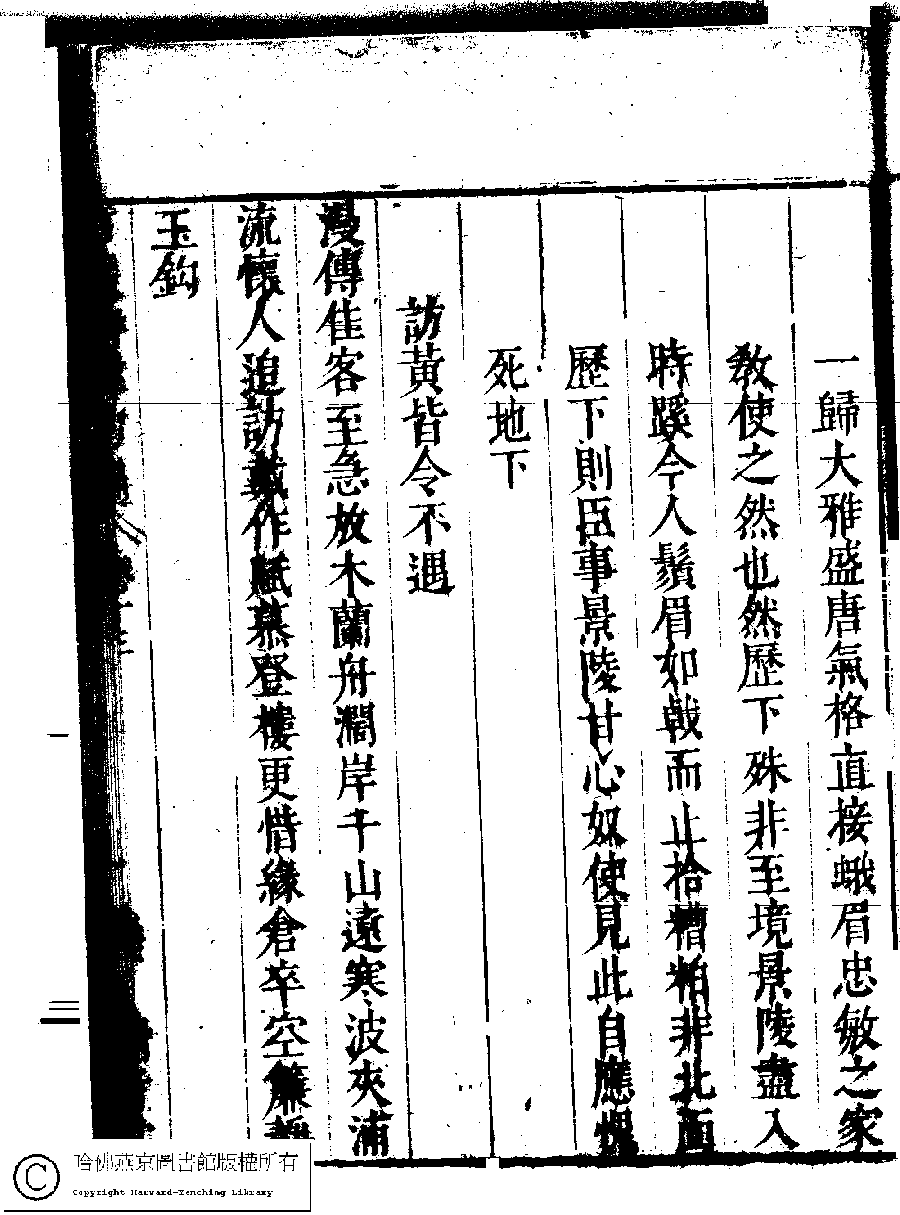 一歸大雅盛唐氣格直接蛾眉忠敏之家
教使之然也然歷下殊非至境景陵盡入
時蹊今人鬚眉如戟而止拾糟粕非北面
歷下則臣事景陵甘心奴使見此自應愧
死地下
訪黃皆令不遇
漫傳佳客至急放木蘭舟濶岸千山遠寒波夾浦
流懷人追訪戴作賦慕登樓更惜緣倉卒空簾靜
玉鈎
哈佛燕京圖書館版權所有
Copyright Harvard-Yenching Library